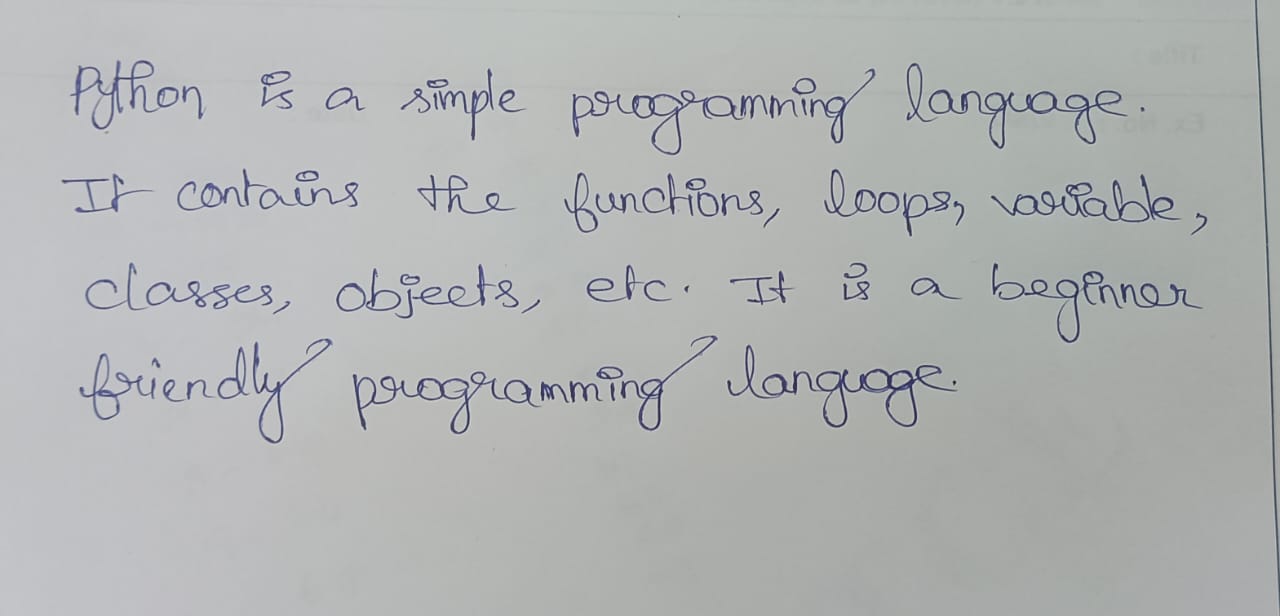 Python is a simple programming language.
It contains the functions, loops, variable,
classes, objects, etc. It is a beginner
friendly programming language.